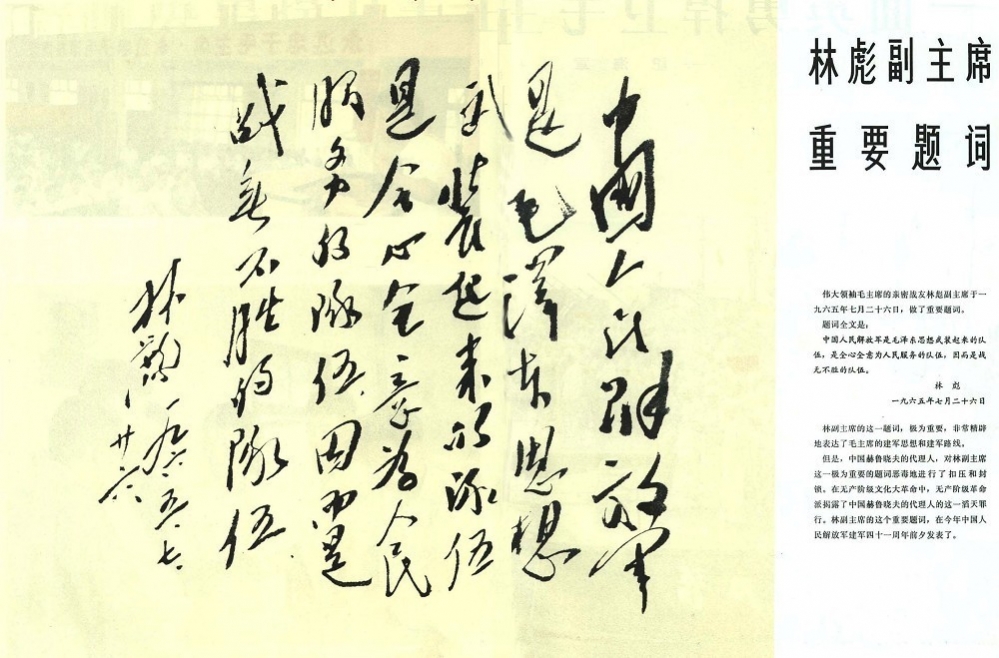 林彪副主席
重要题词
伟大领袖毛主席的亲密战友林彪副主席于一
九六五年七月二十六日，做了重要题词。
题词全文是：
中国人民解放军是毛泽东思想武装起来的队
伍，是全心全意为人民服务的队伍，因而是战
无不胜的队伍。
林 彪
一九六五年七月二十六日
林副主席的这一题词，极为重要，非常精辟
地表达了毛主席的建军思想和建军路线。
但是，中国赫鲁晓夫的代理人，对林副主席
这一极为重要的题词恶毒地进行了扣压和封
锁。在无产阶级文化大革命中，无产阶级革命
派揭露了中国赫鲁晓夫的代理人的这一滔天罪
行。林副主席的这个重要题词，在今年中国人
民解放军建军四十一周年前夕发表了。
中國人民解放军
是毛澤东思想
武装起来的隊伍
是全心全意为人民
服务的隊伍，因而是
战無不胜的隊伍.
林彪
一九六五.七.
廿六